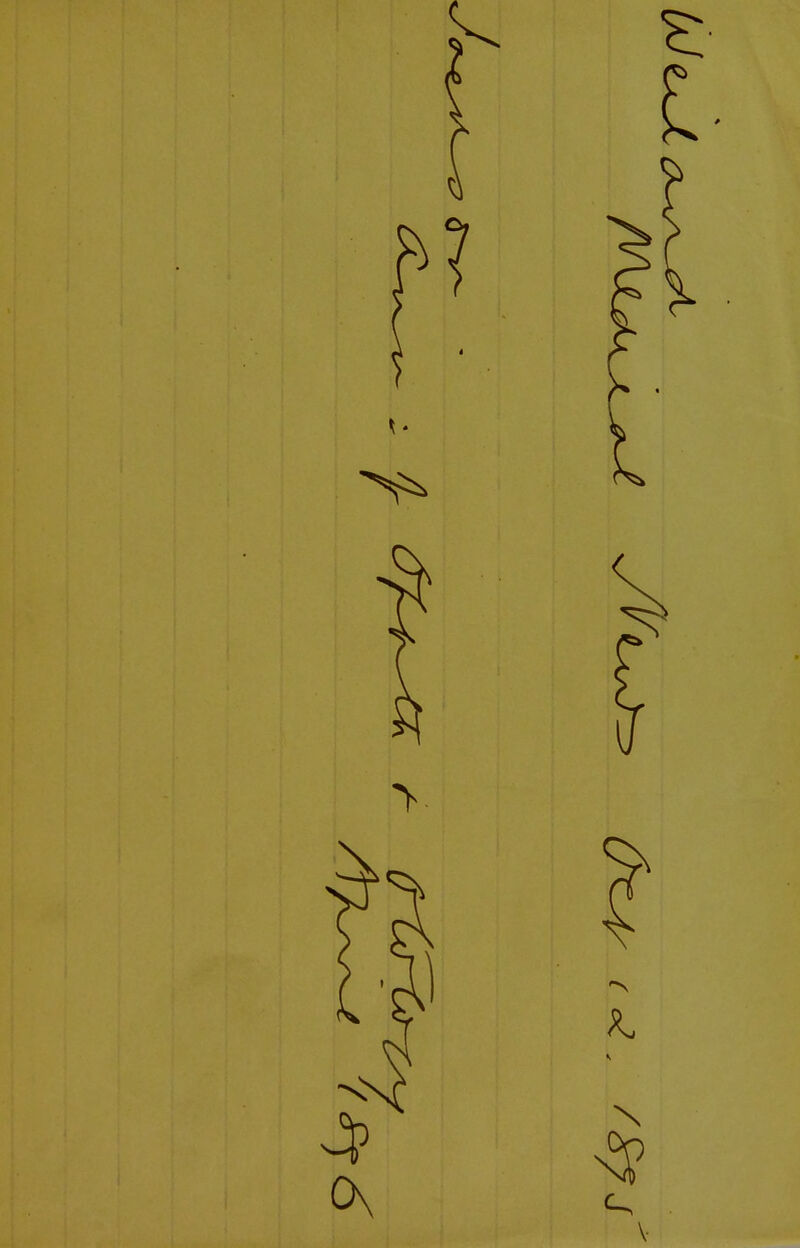 Weiland
Medical News Oct 12. 1895
Jackson
Ann: of Ophth + Otology
April 1896